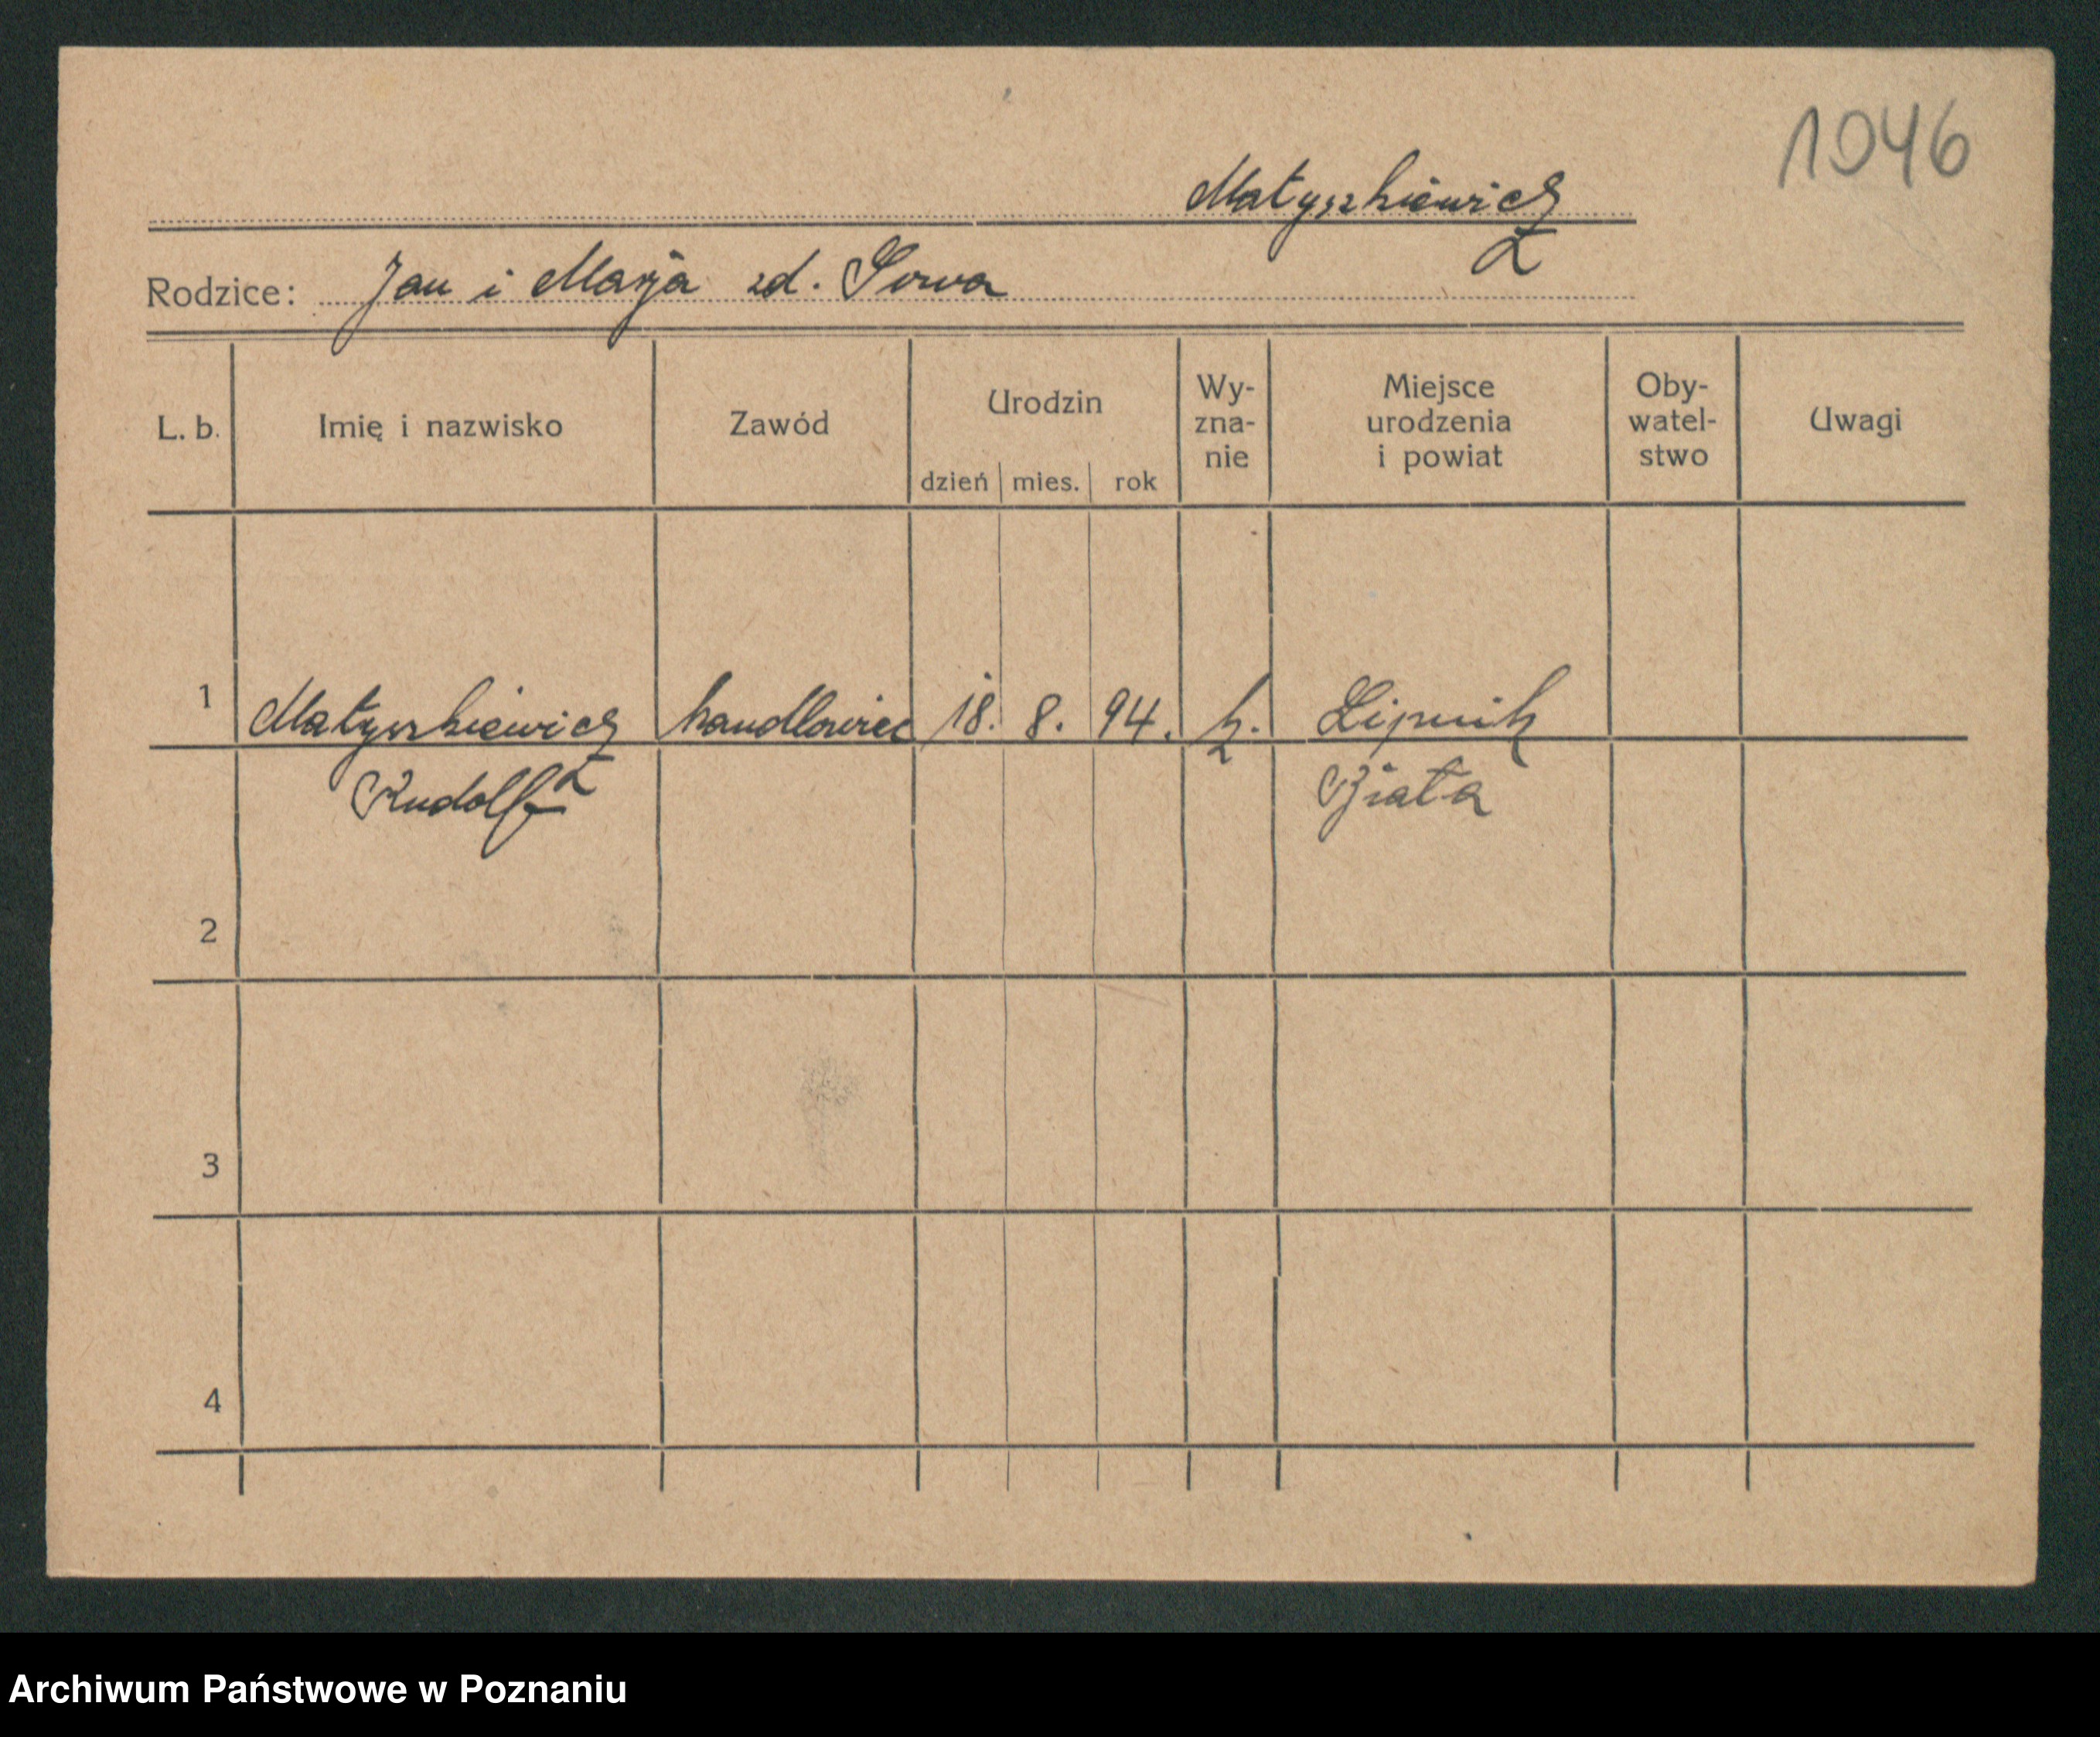 1046
Matyszkiewicz
Rodzice: Jan i Marja zd. Sowa
L. b. Imię i nazwisko Zawód Urodzin dzień mies. rok Wy-zna-nie Miejsce urodzenia i powiat Oby-watel-stwo Uwagi
1 Matyszkiewicz handlowiec 18. 8. 94. k. Lipnik
Rudolf Biała
2
3
4
Archiwum Państwowe w Poznaniu